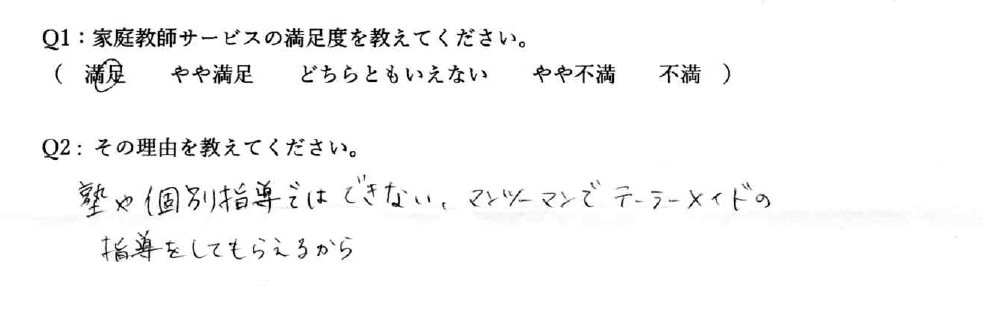 Q1：家庭教師サービスの満足度を教えてください。
（　満足　　やや満足　　どちらともいえない　　やや不満　　不満　）
Q2：その理由を教えてください。
塾や個別指導ではできない、マンツーマンでテーラーメイドの
指導をしてもらえるから